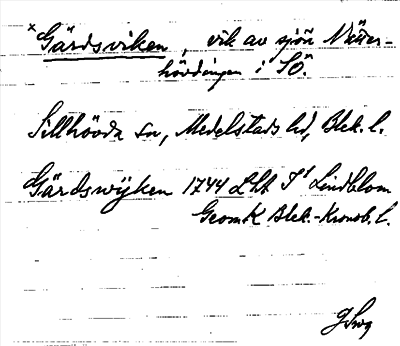 × Gärdsviken, vik av sjön Nätter-
hövdingen i SÖ.
Sillhövda sn, Medelstads hd, Blek. l.
Gärdswijken 1744 Lht J Lindblom
GeomK Blek.-Kronob. l.